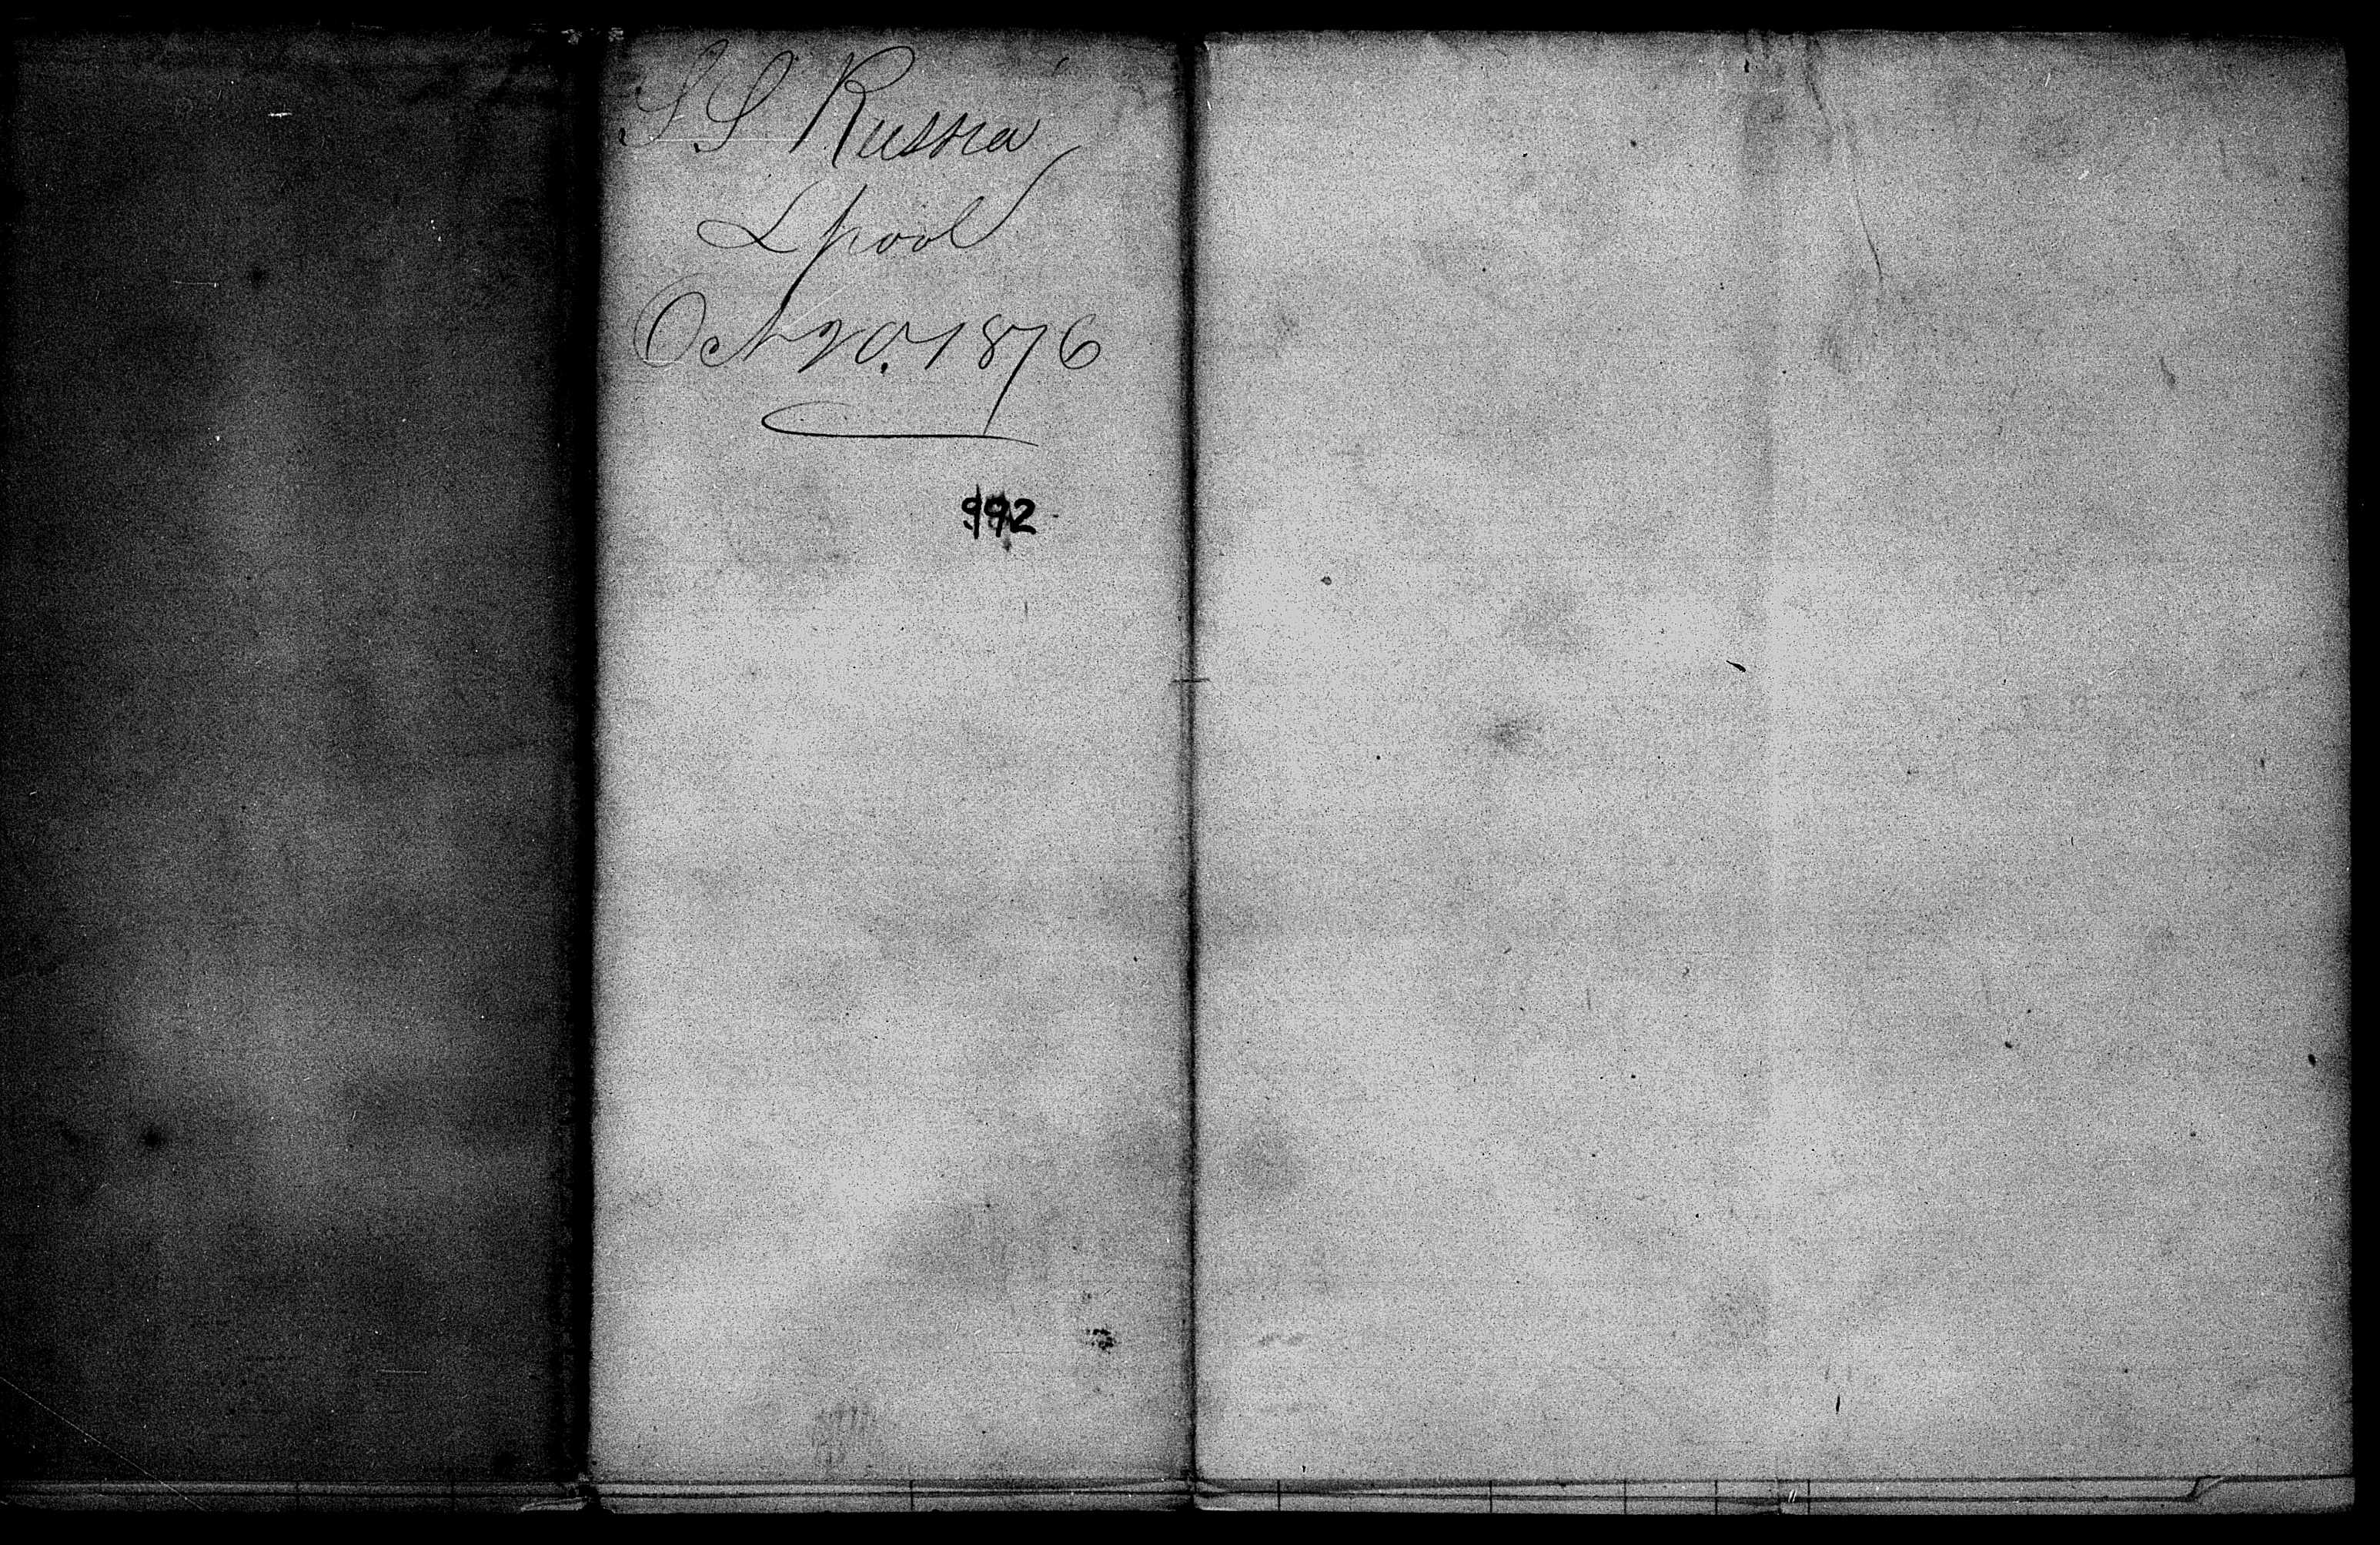 S.S Russia
Lpool
Oct 20. 1876
992